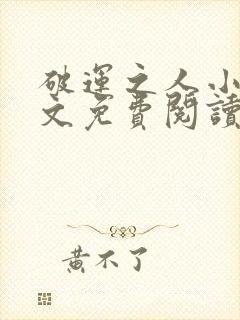 破運之人小
文免費閱讀
黃不了